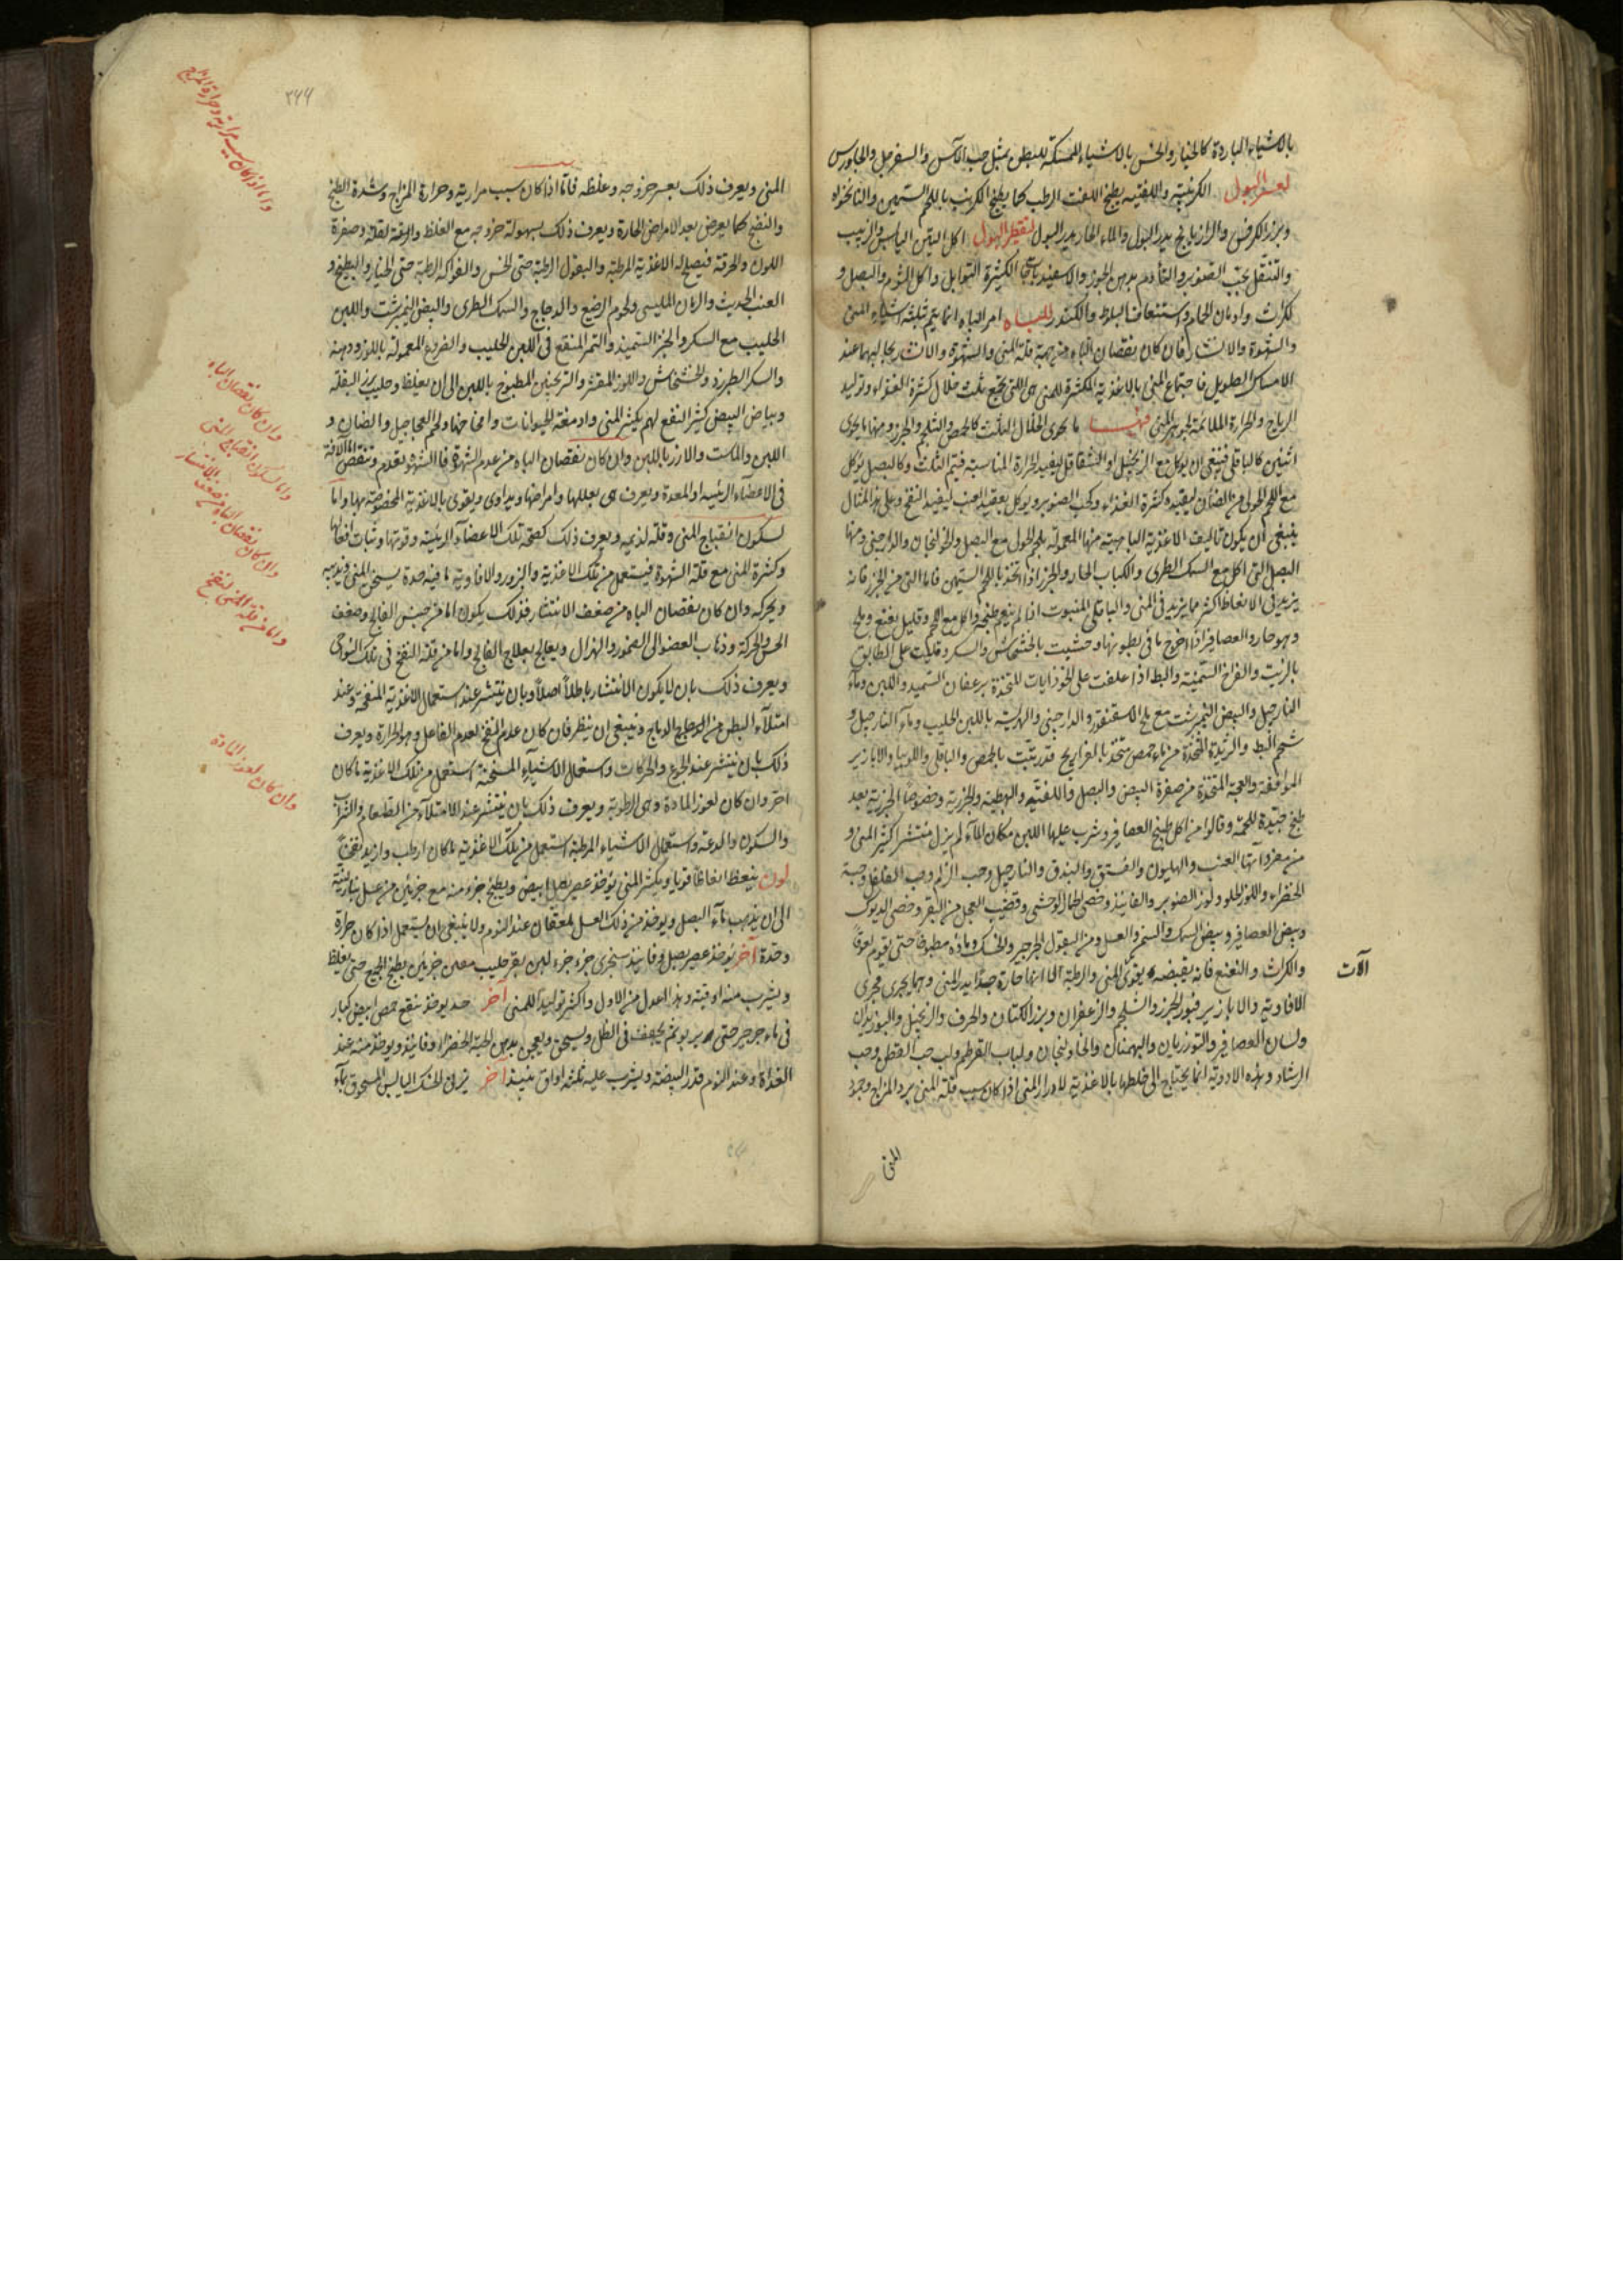 بالاشياء الباردة كالخيار والخس بالاشياء الممسكة للبطن مثل حب الآس والسفرجل والجاورس
لعسر البول الكرنبية واللفتية يطبخ اللفت الرطب كما يطبخ الكرنب باللحم السمين والنانخواه
وبزر الكرفس والرازيانج يدر البول والماء الحار يدر البول لتقطير البول اكل التين اليابس والزبيب
والتنقل بحب الصنوبر والتأدم بدهن الجوز والاسفيدباجات الكثيرة التوابل واكل الثوم والبصل و
الكراث وادمان الحمام واستعمال البلوط والكندر للباه امر الباه انما يتم بثلثة اشياء المنى
والشهوة والانتشار فان كان نقصان الباه من جهة قلة المنى والشهوة والانتشار بحاليهما عند
الامساك الطويل فاجتماع المنى بالاغذية المكثرة للمنى هى اللتى يجتمع ثلث خلال كثرة الغذاء وتوليد
الرياح والحرارة الملائمة لجوهر المنى فمنها ما يحوى الخلال الثلث كالحمص والشلجم والجزر ومنها ما يحوى
اثنين كالباقلى فينبغى ان يوكل مع الزنجبيل او الشقاقل ليفيد الحرارة المناسبة فيتم الثلث وكالبصل يوكل
مع اللحم الحولى من الضأن ليفيد كثرة الغذاء وكحب الصنوبر ويوكل بعقيد العنب ليفيد النفخ وعلى هذا المثال
ينبغى ان يكون تاليف الاغذية الباهية منها المعمولة بلحم الحولى مع البصل والخولنجان والدارچينى ومنها
البصل التى اكل مع السمك الطرى والكباب الحار والجزر اذا اتخذ باللحم السمين فاما التى من الجزر فانه
يزيد فى الانعاظ اكثر مما يزيد فى المنى والباقلى المنبوت اذا لم ينعم طبخه واكل مع اللحم وقليل نعنع وملح
وهو حار والعصافير اذا اخرج ما فى بطونها وحشيت بالخشخاش والسكر وقليت على الطابق
بالزيت والفراخ السمينة والبط اذا علفت على الجوذابات المتخذة برغفان السميد واللبن وماء
النارجيل والبيض النيمبرشت مع ملح الاسقنقور والدارجينى والهريسة باللبن الحليب وماء النارجيل و
شحم البط والثريدة المتخذة من ماء حمص متخذ بالفراريج قد ربيت بالحمص والباقلى واللوبيا والابازير
الموافقة والعجة المتخذة من صفرة البيض والبصل واللفتية والبصلية والجزرية وخصوصا الجزرية بعد
طبخ جيدة للحمه وقالوا من اكل طبيخ العصافير وشرب عليها اللبن مكان الماء لم يزل منتشرا كثير المنى و
من مفرداتها العنب والهليون والفستق والبندق والنارجيل وحب الزلم وحب الفلفل وحبة
الخضراء واللوز الحلو ولوز الصنوبر والفانيذ وخصى الحمار الوحشى وقضيب العجل من البقر وخصى الديوك
وبيض العصافير وبيض السمك والسمن والعسل ومن البقول الجرجير والحسك وماؤه مطبوخا حتى يقوم لعوقا
والكراث والنعنع فانه بقبضه يقوى المنى والرطبة الا انها حارة جدا يدر المنى وهما يجرى مجرى
الآت
الافاوية والابازير فبزر الجزر والشلجم والزعفران وبزر الكتان والحرف والزنجبيل والبوزيدان
ولسان العصافير والتوذريان والبهمنان والخاولنجان ولباب القرطم ولب حب القطن وحب
الرشاد وهذه الادوية انما يحتاج الى خلطها بالاغذية لادرار المنى اذا كان سبب قلة المنى برد المزاج وجمود
المنى
المنى ويعرف ذلك بعسر خروجه وغلظه فاما اذا كان سبب مرارية وحرارة المزاج وشدة الطبخ
والنضج كما يعرض بعد الامراض الحارة ويعرف ذلك بسهولة خروجه مع الغلظ والرقة لقلته وصفرة
اللون والحرقة فيصلح له الاغذية المرطبة والبقول الرطبة حتى الخس والفواكه الرطبة حتى الخيار والبطيخ و
العنب الحديث والرمان المليسى ولحوم الرضيع والدجاج والسمك الطرى والبيض النيمبرشت واللبن
الحليب مع السكر والخبز السميد والتمر المنقع فى اللبن الحليب والفروع المعمولة باللوز ودهنه
والسكر الطبرزد والخشخاش واللوز المقشر والترنجبين المطبوخ باللبن الى ان يغلظ وحليب بزر البقلة
وبياض البيض كثير النفع لهم يكثر المنى وادمغة الحيوانات وامخاخها ولحم العجاجيل والضان و
اللبن والماست والارز باللبن وان كان نقصان الباه من عدم الشهوة فالشهوة تعدم وتنقص اما لآفة
فى الاعضاء الرئيسة او المعدة ويعرف هى بعللها وامراضها ويداوى ويقوى بالاغذية المخصوصة بها واما
لسكون انقباح المنى وقلة لذيعه ويعرف ذلك كصحة تلك الاعضاء الرئيسة وقوتها وثبات افعالها
وكثرة المنى مع قلة الشهوة فيستعمل من تلك الاغذية والبزور والافاوية ما فيه حدة يسخن المنى ويذيبه
ويحركه وان كان نقصان الباه من ضعف الانتشار فذلك يكون اما من جنس الفالج وضعف
الحس والحركة وذهاب العضو الى الضمور والهزال ويعالج بعلاج الفالج واما من قلة النفخ فى تلك النواحى
ويعرف ذلك بان لا يكون الانتشار باطلا اصلا وبان ينتشر عند استعمال الاغذية المنفخة وعند
امتلآء البطن من الرياح وينبغى ان ينظر فان كان عدم النفخ لعدم الفاعل وهو الحرارة ويعرف
ذلك بان ينتشر عند الجوع والحركات واستعمال الاشيآء المسخنة استعمل من تلك الاغذية ما كان
احر وان كان لعوز المادة وهى الرطوبة ويعرف ذلك بان ينتشر عند الامتلآء من الطعام والشراب
والسكون والدعة واستعمال الاشياء المرطبة استعمل من تلك الاغذية ما كان ارطب وازيد نفخا
لون ينعظ انعاظا قويا ويكثر المنى يؤخذ عصير بصل ابيض ويطبخ جزء منه مع جزئين من عسل بنار لينة
الى ان يذهب ماء البصل ويوخذ من ذلك العسل ملعقتان عند النوم ولا ينبغى ان يستعمل اذا كان حرارة
وحدة آخر يؤخذ عصير بصل وفانيذ سنجرى جزء جزء لبن بقر حليب معين جزئين يطبخ الجميع حتى يغلظ
ويشرب منه اوقية وهذا اعدل من الاول واكثر توليدا للمنى آخر جيد يوخذ ينقع حمص ابيض كبار
فى ماء جرجير حتى يربو ثم يجفف فى الظل ويسحق ويعجن بدهن الحبة الخضراء وفانيذ ويوخذ منه عند
الغداة وعند النوم قدر البيضة ويشرب عليه ثلثة اواق نبيذ آخر يربى الحسك اليابس المسحوق بمآء
٢٤٤
واما اذا كان سبب مرارية وحرارة المزاج
وان كان نقصان الباه
واما لسكون انقباح المنى
وان كان نقصان الباه من ضعف الانتشار
واما من قلة النفخ
وان كان لعوز المادة